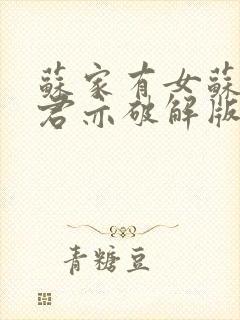 蘇家有女蘇
君亦破解版
青糖豆